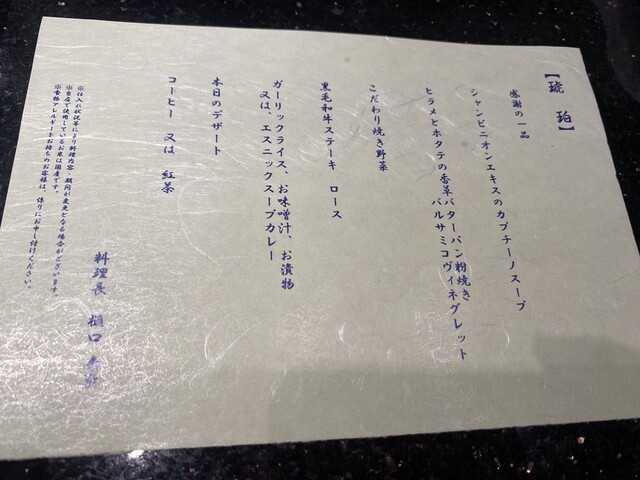 【琥珀】
感謝の一品
シャンピニオンエキスのカプチーノスープ
ヒラメとホタテの香草バターパン粉焼き
バルサミコヴィネグレット
こだわり焼き野菜
黒毛和牛ステーキ ロース
ガーリックライス、お味噌汁、お漬物
又は、エスニックスープカレー
本日のデザート
コーヒー 又は 紅茶
※仕入れ状況等により料理内容・期間が変更となる場合がございます。
※当店で使用しているお米は国産です。
※食物アレルギーをお持ちのお客様は、係りにお申し付けください。
料理長 樋口